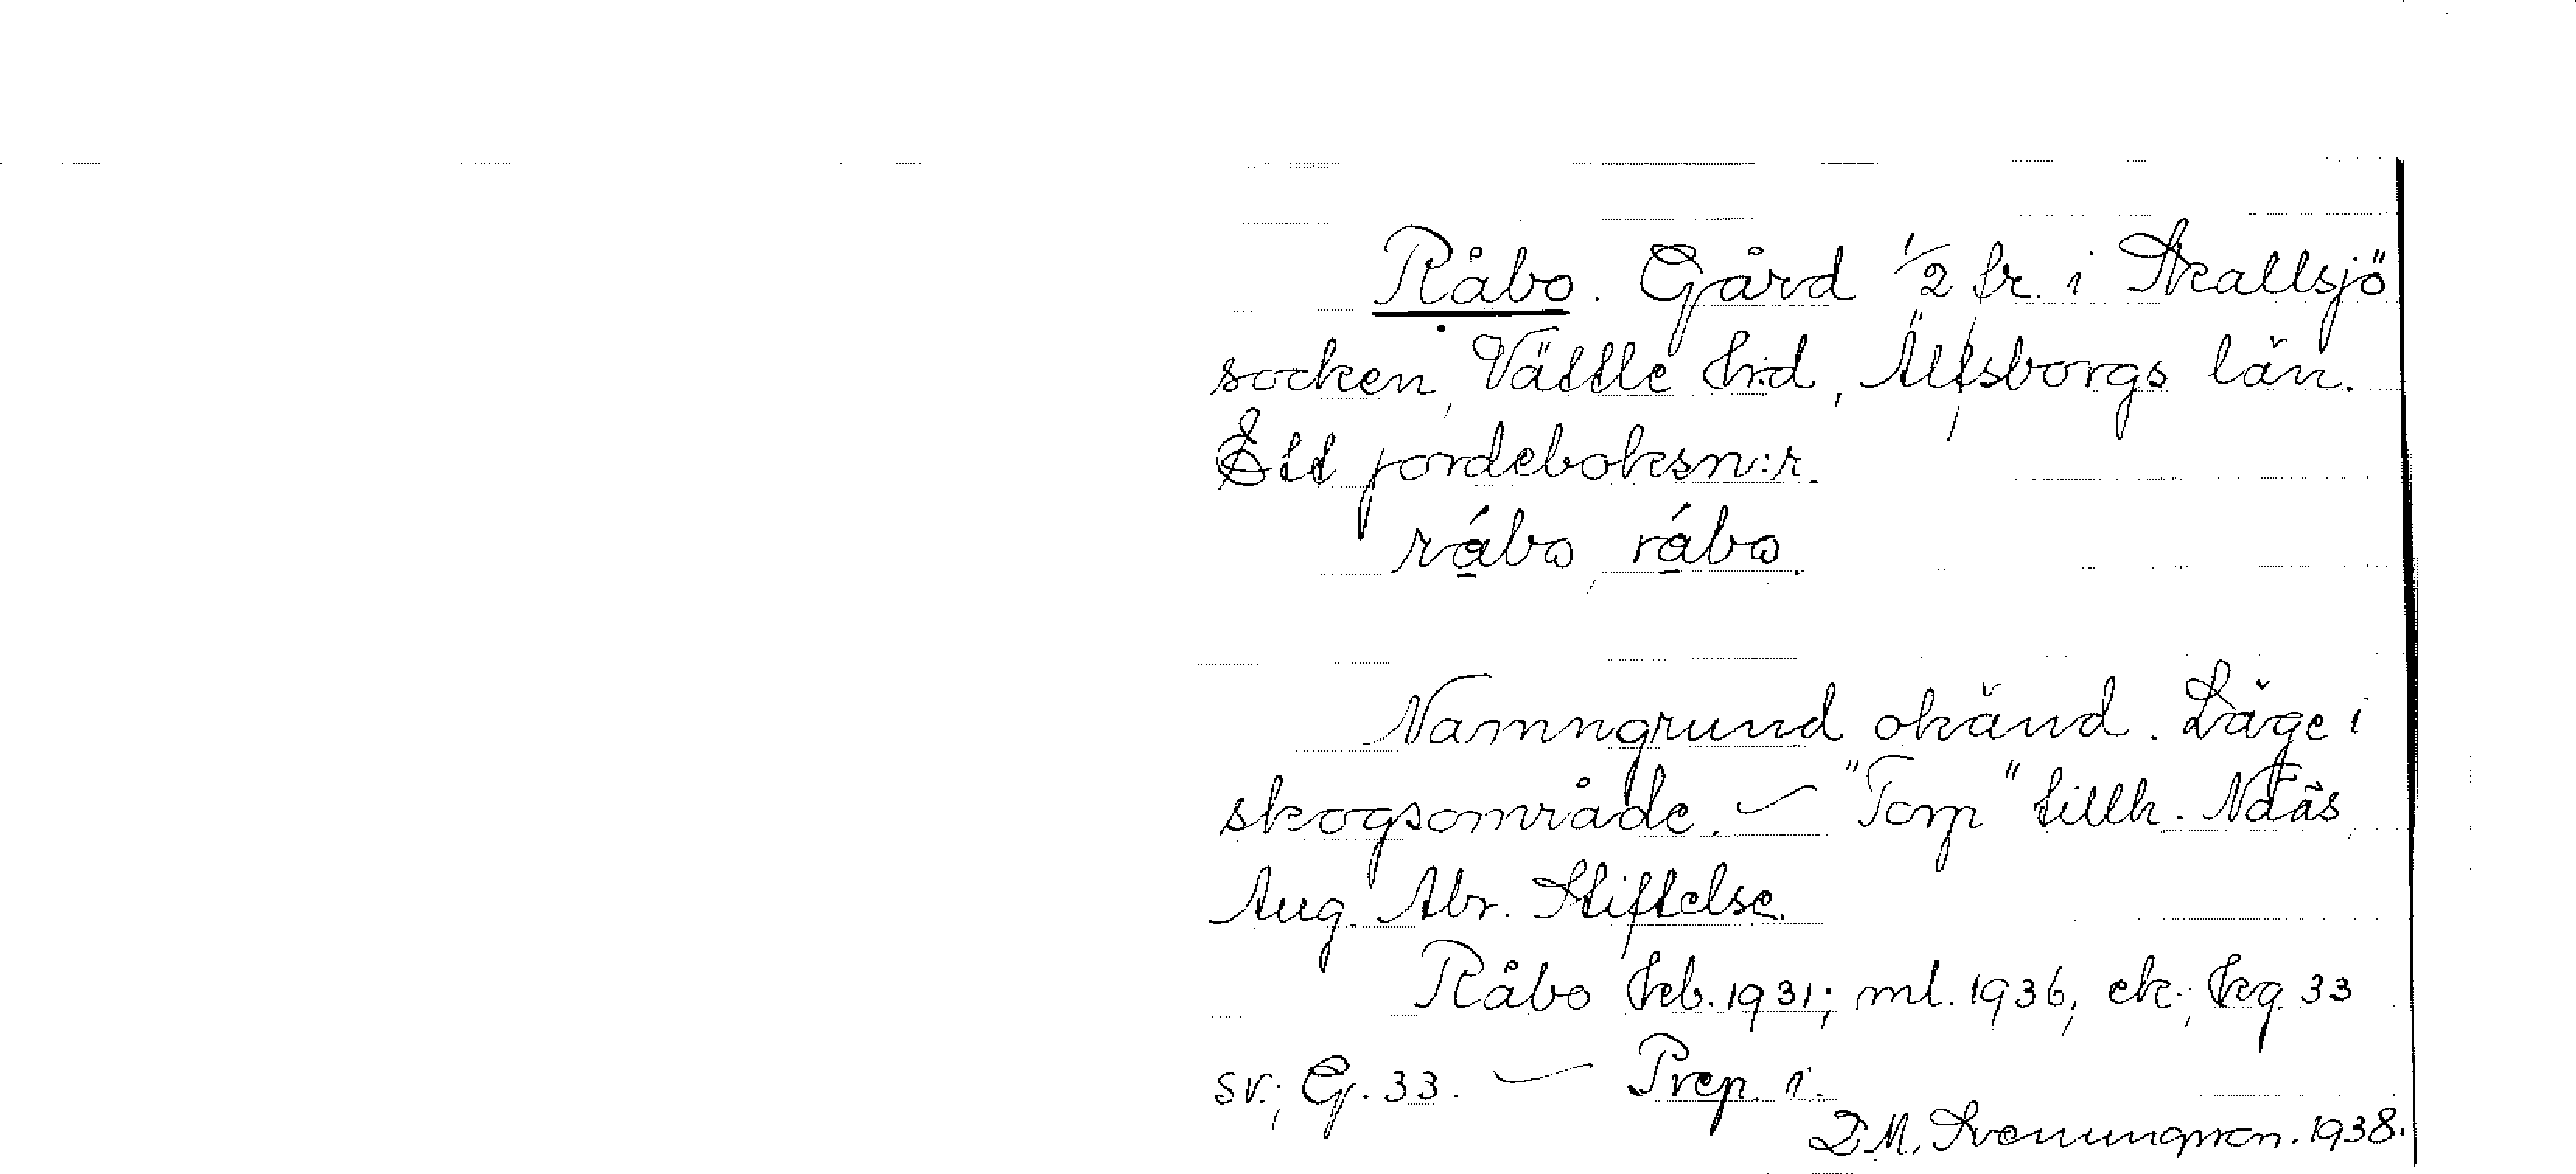 Råbo. Gård 1/2 fr. i Skallsjö
socken, Vättle hd, Älfsborgs län.
Ett jordeboksn:r.
rábo, rábo.
Namngrund okänd. Läge i
skogsområde. – "Torp" tillh. Nääs,
Aug. Abr. Stiftelse.
Råbo Jrb. 1931; ml. 1936; ek.; kg 33
sv.; G. 33. – Prep. i.
1938.